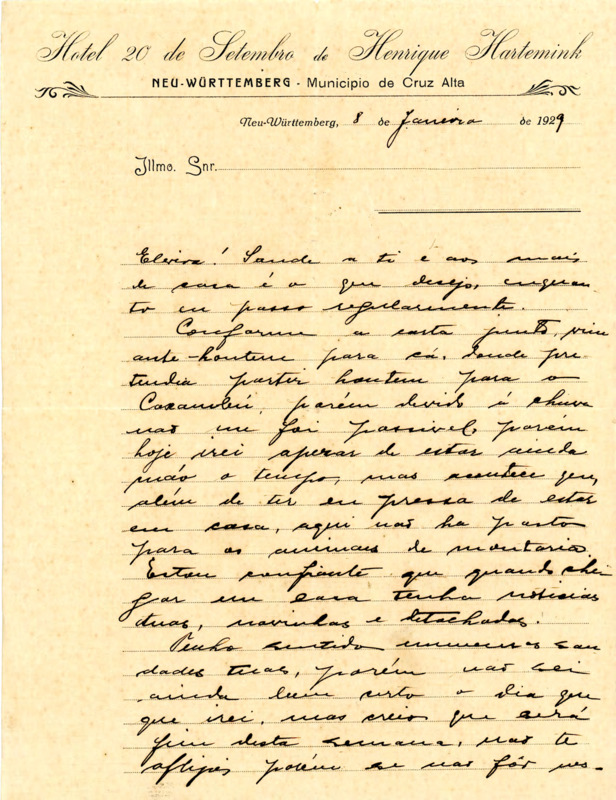 Hotel 20 de Setembro de Henrique Hartemink
NEU-WÜRTTEMBERG - Municipio de Cruz Alta
Neu-Württemberg, 8 de Janeiro de 1929
Illmo. Snr.
Elvira! Saude a ti e aos mais
de casa é o que desejo, enquan-
to eu passo regularmente.
Conforme a carta junto, vim
ante-hontem para cá, donde pre-
tendia partir hontem para o
Caxambú, porém devido á chuva
não me foi possivel, porém
hoje irei apezar de estar ainda
máo o tempo, mas acontece que,
além de ter eu pressa de estar
em casa, aqui não ha pasto
para os animaes de montaria.
Estou confiante que quando che-
gar em casa tenha noticias
tuas, novinhas e detalhadas.
Tenho sentido immensas sau-
dades tuas, porém não sei
ainda bem certo o dia que
que irei, mas creio que será
fim desta semana, não te
aflijas porém se não fôr nes-